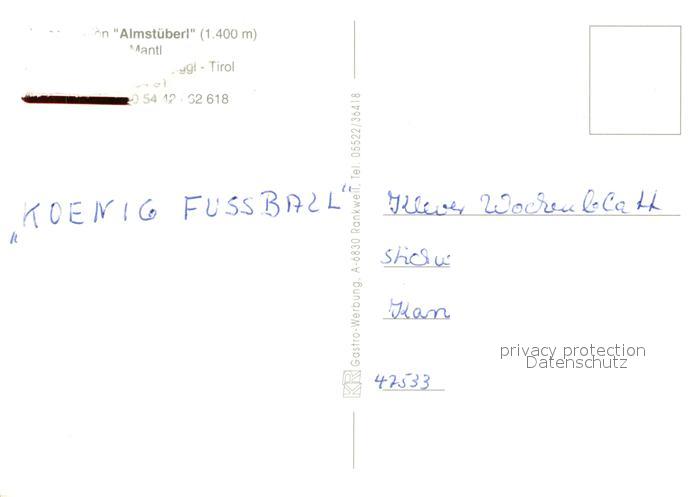 "Almstüberl" (1.400 m)
Mantl
ggl - Tirol
0 54 42 - 62 618
„KOENIG FUSSBALL“
Gastro-Werbung, A-6830 Rankweil, Tel. 05522/36418
Klever Wochenblatt
47533
privacy protection
Datenschutz